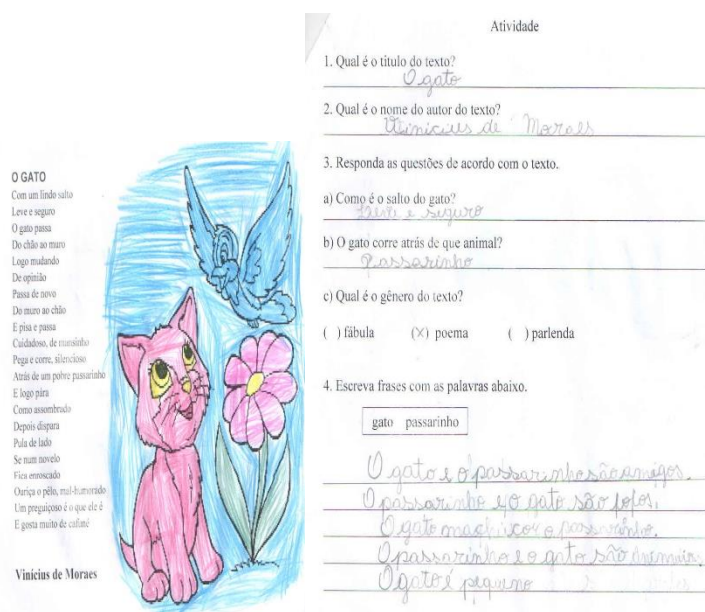 O GATO
Com um lindo salto
Leve e seguro
O gato passa
Do chão ao muro
Logo mudando
De opinião
Passa de novo
Do muro ao chão
E pisa e passa
Cuidadoso, de mansinho
Pega e corre, silencioso
Atrás de um pobre passarinho
E logo pára
Como assombrado
Depois dispara
Pula de lado
Se num novelo
Fica enroscado
Ouriça o pêlo, mal-humorado
Um preguiçoso é o que ele é
E gosta muito de cafuné
Vinícius de Moraes
Atividade
1. Qual é o título do texto?
O gato
2. Qual é o nome do autor do texto?
Vinicius de Moraes
3. Responda as questões de acordo com o texto.
a) Como é o salto do gato?
Leve e seguro
b) O gato corre atrás de que animal?
Passarinho
c) Qual é o gênero do texto?
( ) fábula (X) poema ( ) parlenda
4. Escreva frases com as palavras abaixo.
gato passarinho
O gato e o passarinho são amigos.
O passarinho e o gato são fofos.
O gato machucou o passarinho.
O passarinho e o gato são
O gato é pequeno